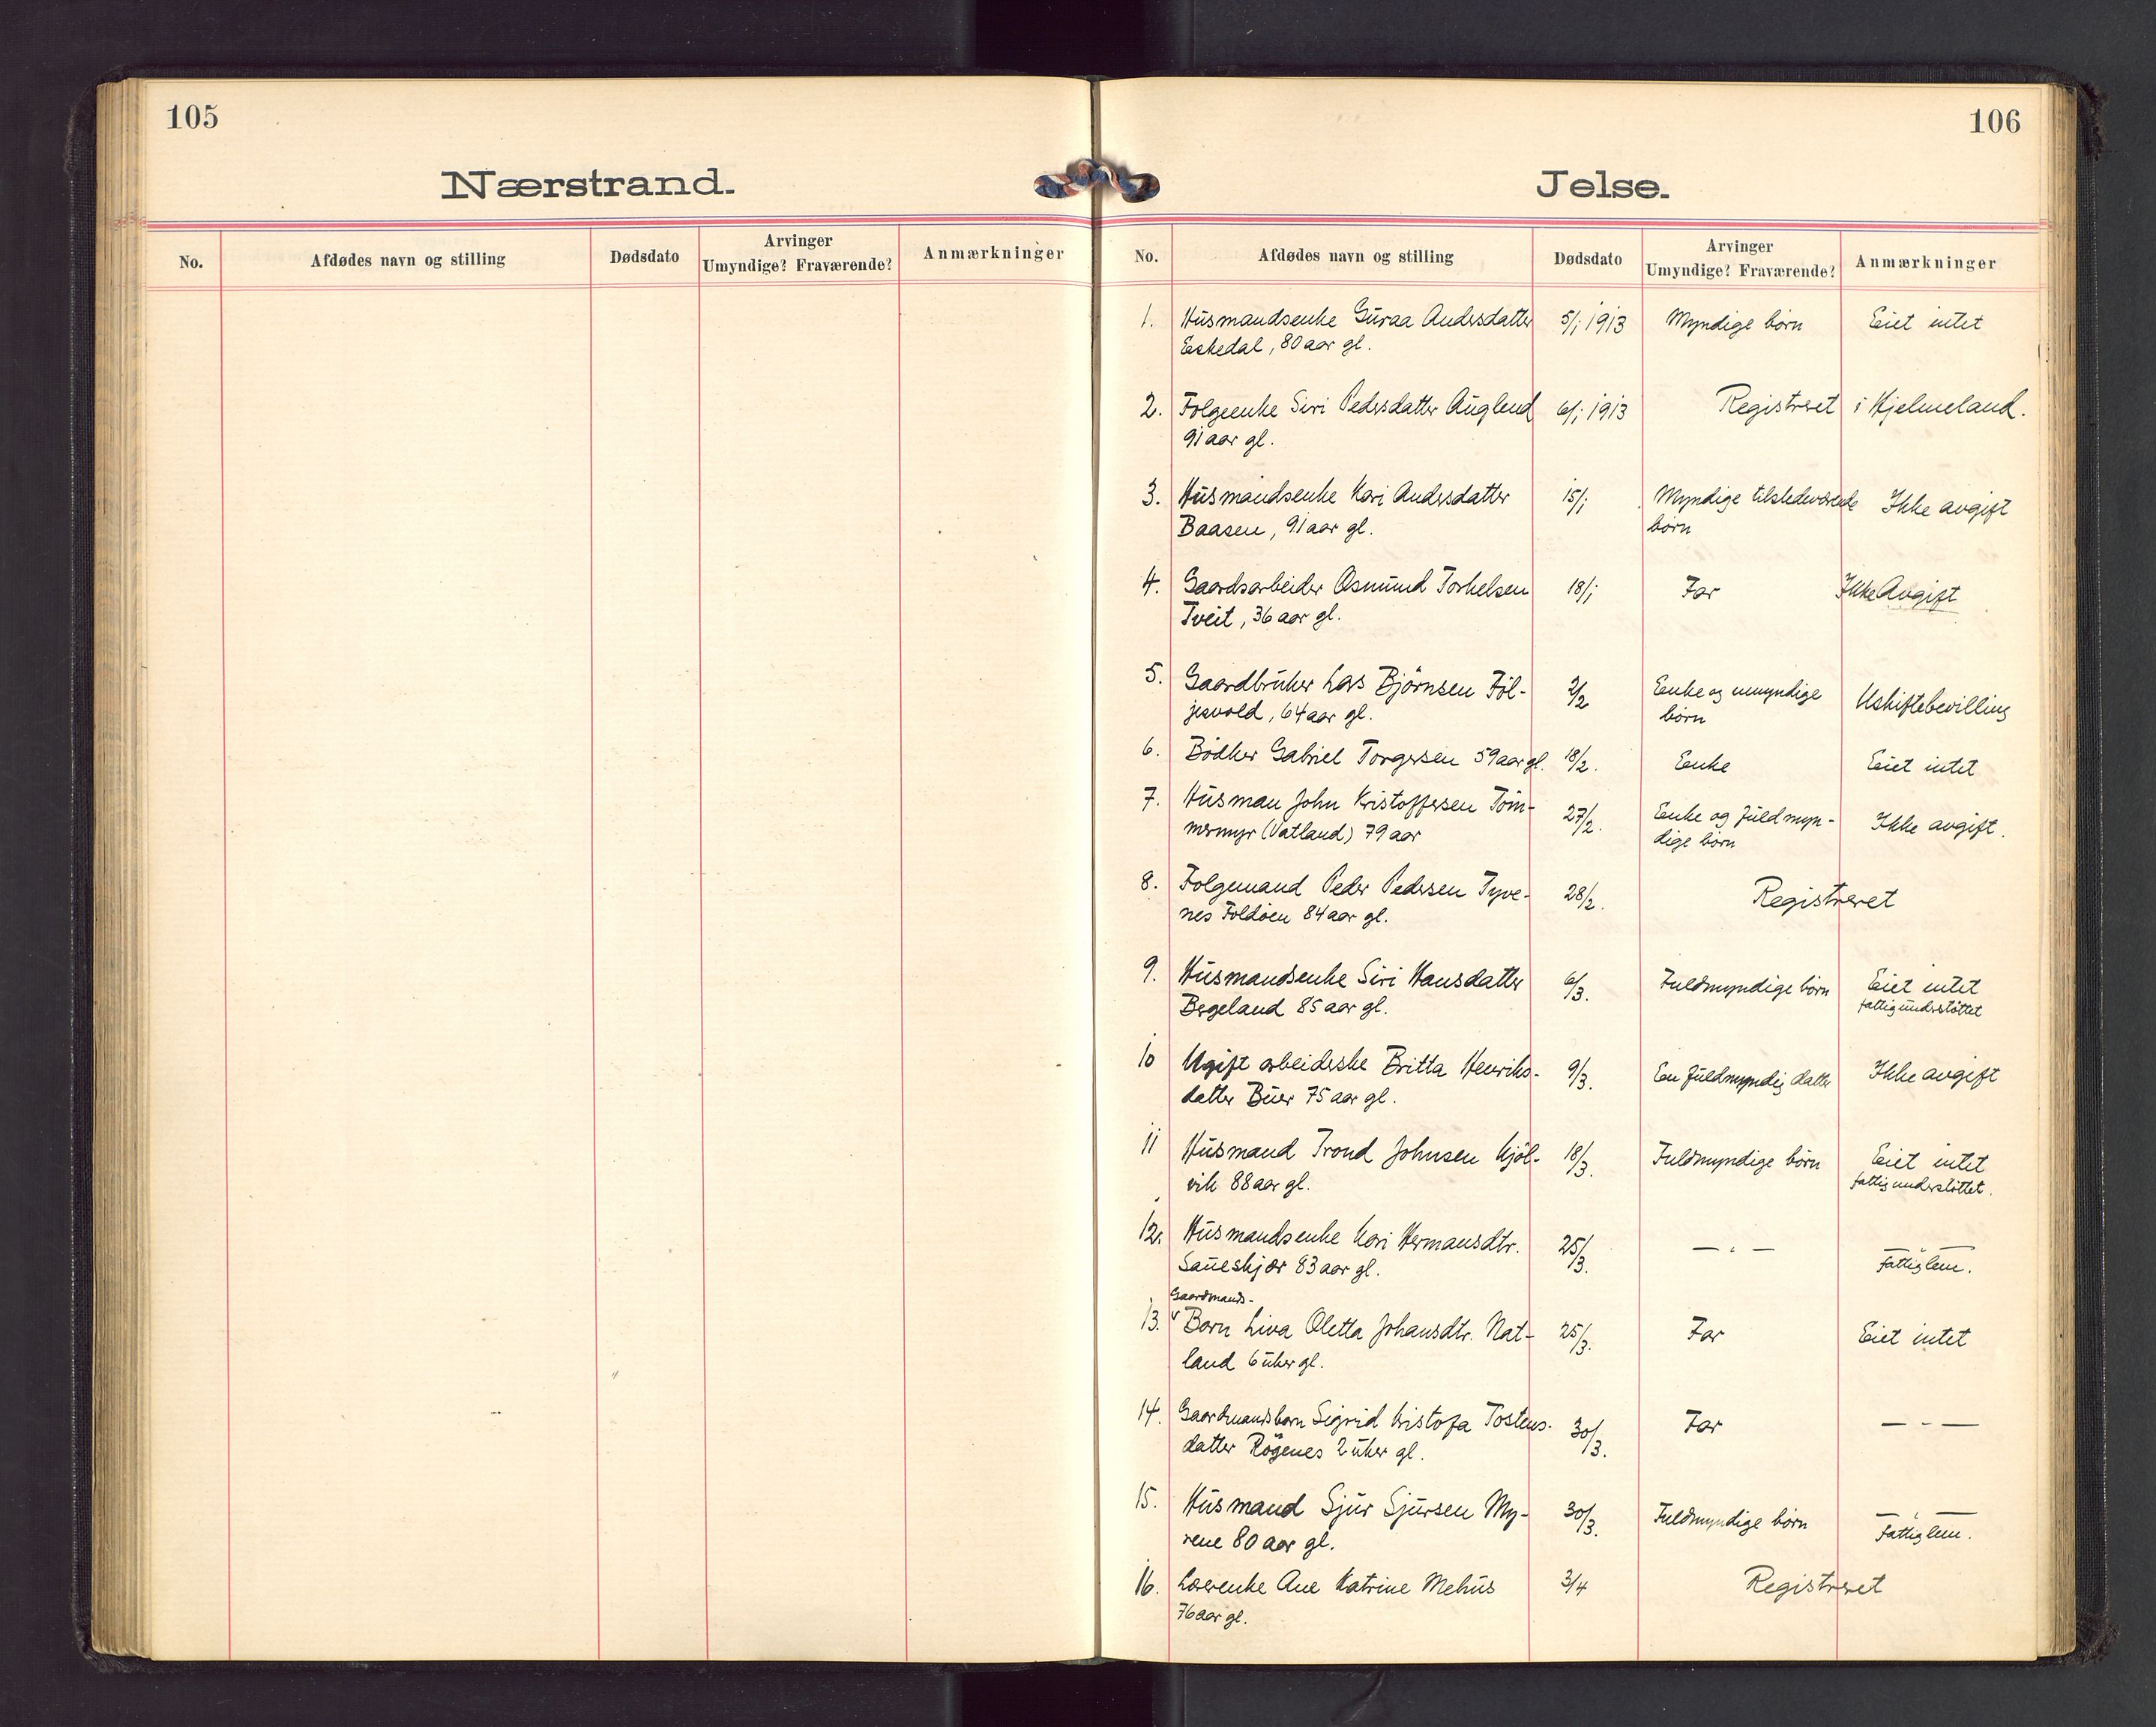 105
Nærstrand.
No. Afdødes navn og stilling Dødsdato Arvinger Umyndige? Fraværende? Anmærkninger
106
Jelse.
No. Afdødes navn og stilling Dødsdato Arvinger Umyndige? Fraværende? Anmærkninger
1. Husmandsenke Guraa Andersdatter 5/1 1913 Myndige børn Eiet intet
Eskedal, 80 aar gl.
2. Folgeenke Siri Pedersdatter Auglend 6/1 1913 Registreret i Hjelmeland.
91 aar gl.
3. Husmandsenke Kari Andersdatter 15/1 Myndige tilstedeværende Ikke avgift
Baasen, 91 aar gl. børn
4. Gaardsarbeider Osmund Torkelsen 18/1 Far Ikke Avgift
Tveit, 36 aar gl.
5. Gaardbruker Lars Bjørnsen Føl- 2/2 Enke og umyndige Uskiftebevilling
jesvold, 64 aar gl. børn
6. Bødker Gabriel Torgersen 59 aar gl. 18/2. Enke Eiet intet
7. Husman John Kristoffersen Tøm- 27/2. Enke og fuldmyn- Ikke avgift.
mermyr (Vatland) 79 aar dige børn
8. Folgemand Peder Pedersen Tyve- 28/2. Registreret
nes Foldøen 84 aar gl.
9. Husmandsenke Siri Hansdatter 6/3. Fuldmyndige børn Eiet intet
Bergeland 85 aar gl. fattigunderstøttet
10 Ugift arbeiderske Britta Henriks- 9/3. En fuldmyndig datter Ikke avgift
datter Buer 75 aar gl.
11 Husmand Trond Johnsen Kjøl- 18/3. Fuldmyndige børn Eiet intet
vik 88 aar gl. fattigunderstøttet.
12. Husmandsenke Kari Hermansdtr. 25/3. — . — — " —
Saueskjær 83 aar gl. Fattiglem.
Gaardmands-
13. Barn Liva Oletta Johansdtr. Nat- 25/3. Far Eiet intet
land 6 uker gl.
14. Gaardmandsbarn Sigrid Kristofa Tostens- 30/3. Far — - —
datter Røgenes 2 uker gl.
15. Husmand Sjur Sjursen My- 30/3. Fuldmyndige børn — " —
rene 80 aar gl. Fattiglem.
16. Lærerenke Ane Katrine Mehus 3/4 Registreret
76 aar gl.